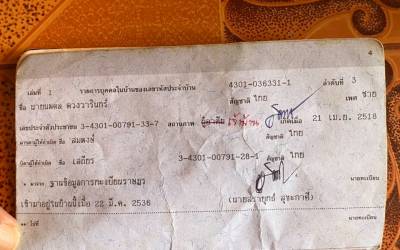 4
เล่มที่ 1 รายการบุคคลในบ้านของเลขรหัสประจำบ้าน 4301-036331-1 ลำดับที่ 3
ชื่อ นายนพดล ดวงวารินทร์ สัญชาติ ไทย เพศ ชาย
เลขประจำตัวประชาชน 3-4301-00791-33-7 สถานภาพ ผู้อาศัย เจ้าบ้าน เกิดเมื่อ 21 เม.ย. 2518
มารดาผู้ให้กำเนิด ชื่อ สัญชาติ ไทย
บิดาผู้ให้กำเนิด ชื่อ เสถียร 3-4301-00791-28-1 สัญชาติ ไทย
* มาจาก ฐานข้อมูลการทะเบียนราษฎร
นายทะเบียน
เข้ามาอยู่ในบ้านนี้เมื่อ 22 มี.ค. 2536
** ไปที่
นายทะเบียน